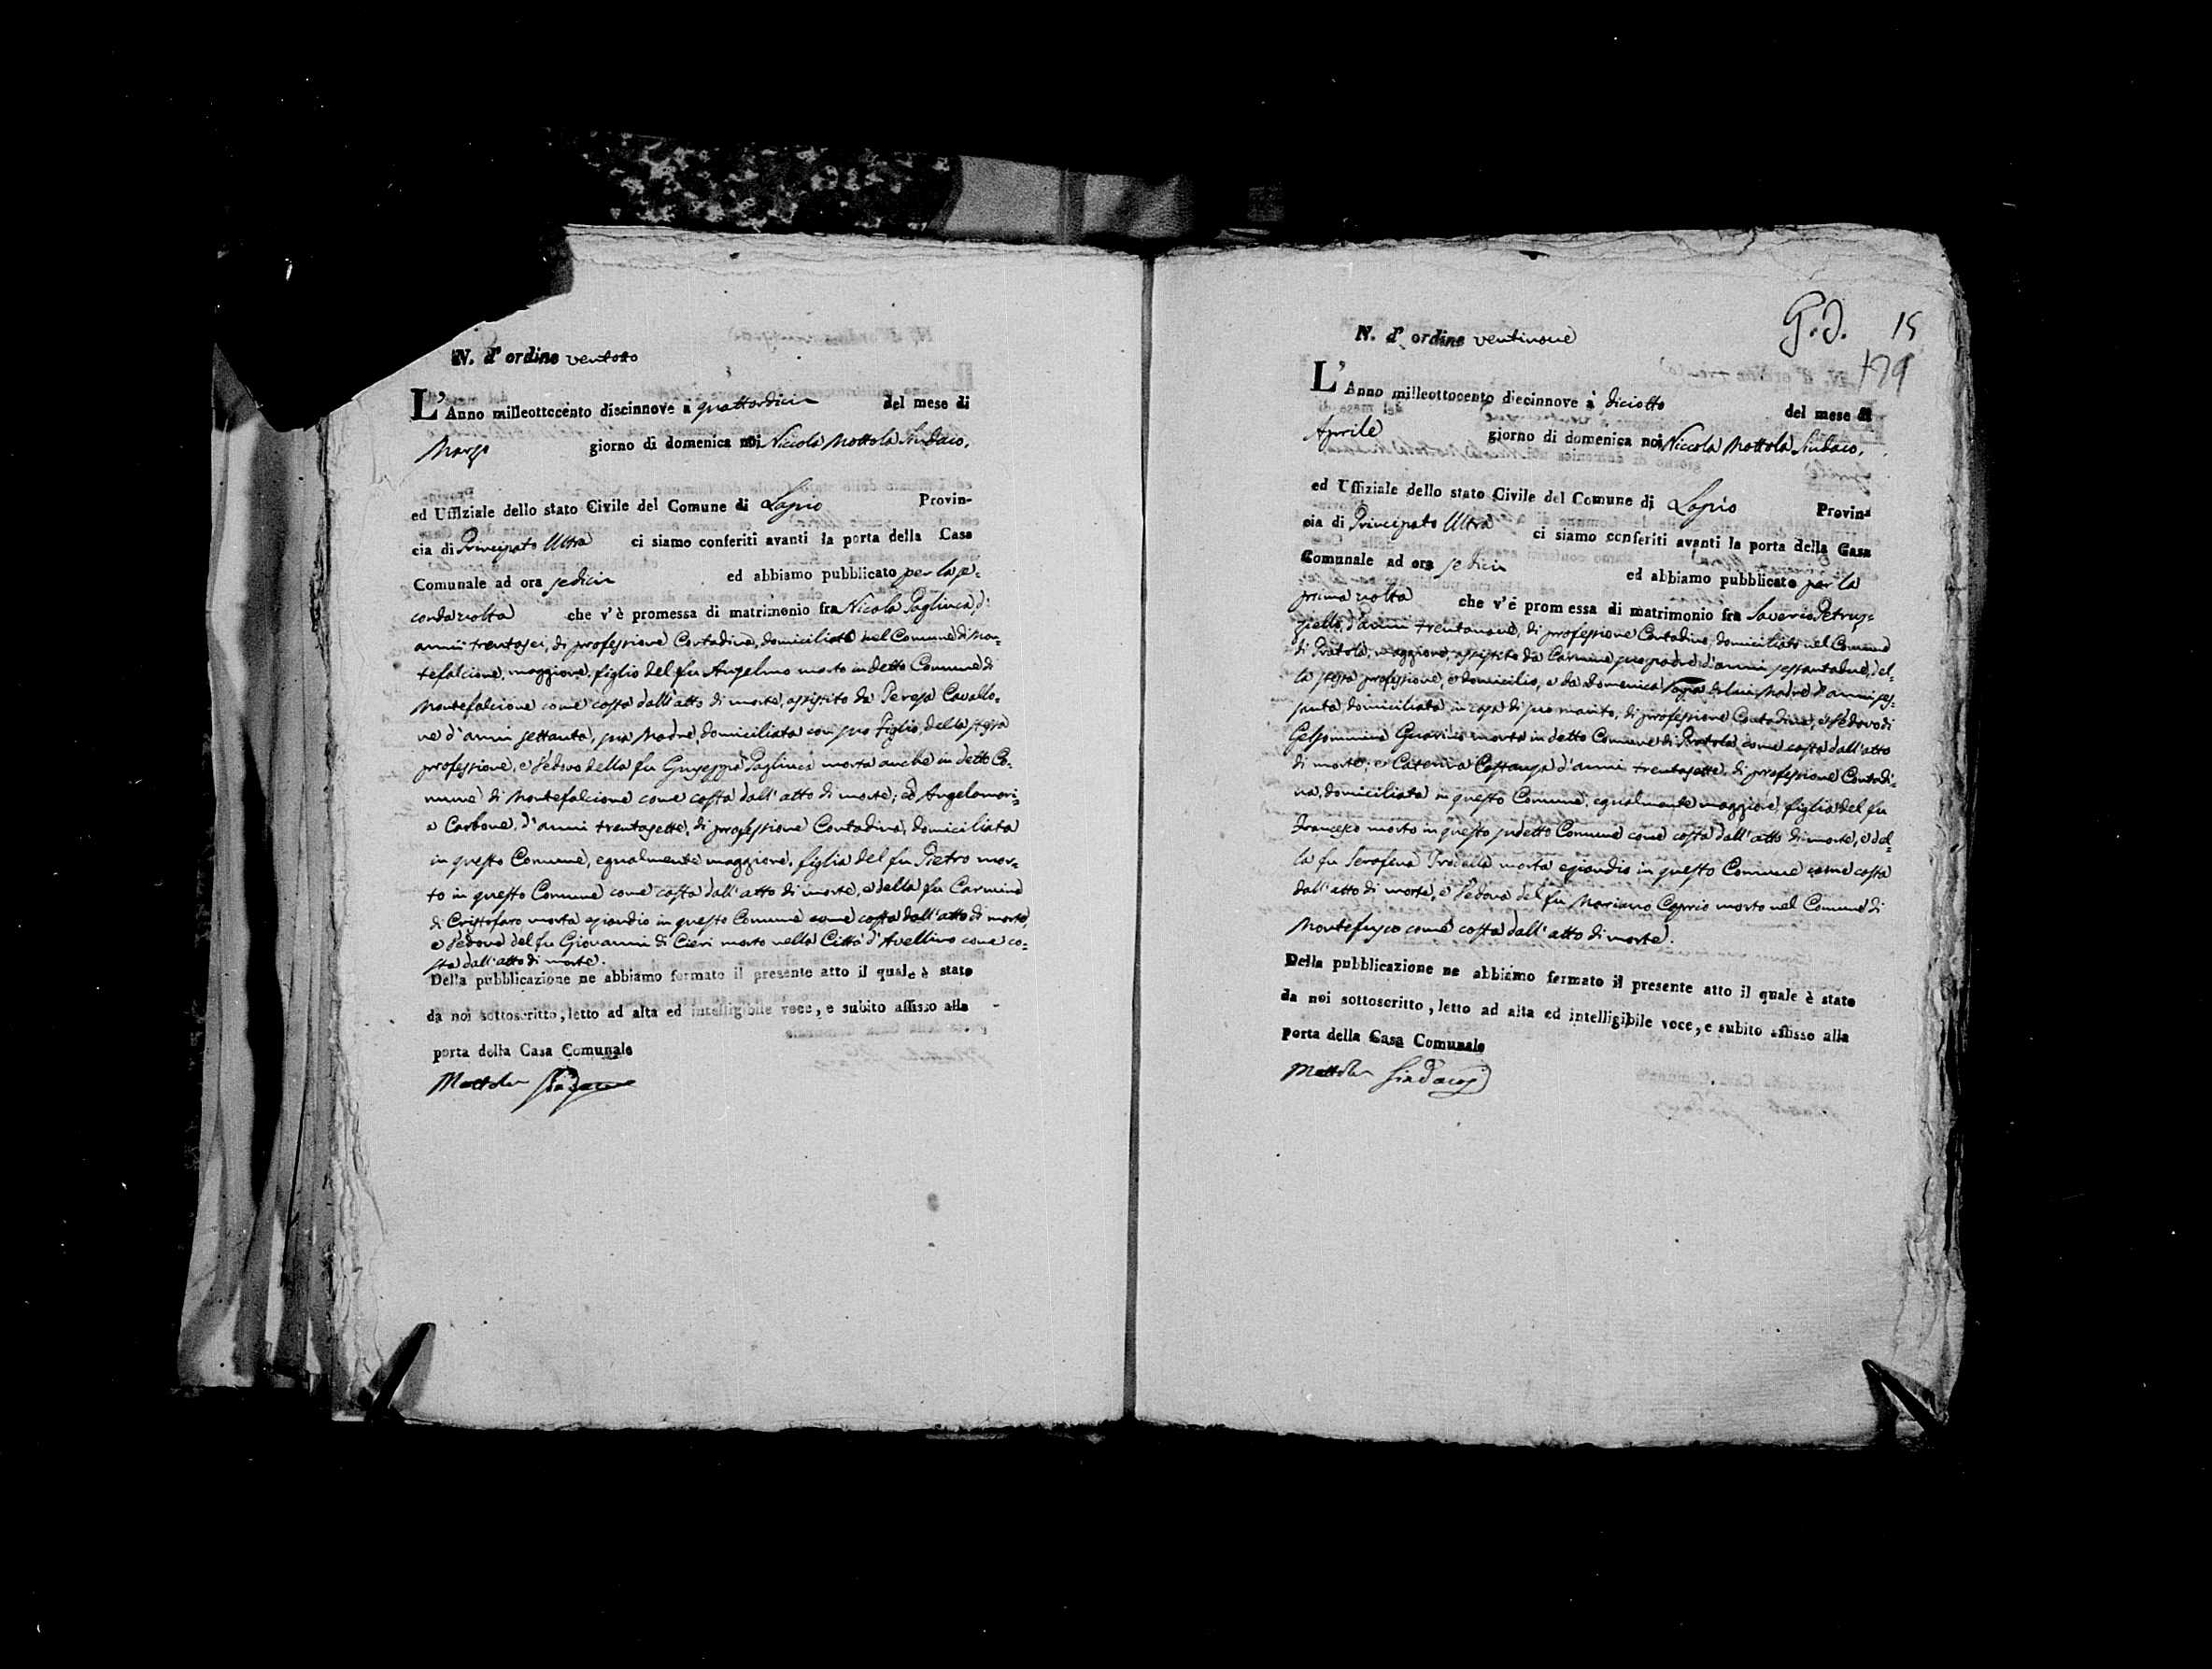 N. d' ordine ventotto
L'Anno milleottocento discinnove a quattordici del mese di
Marzo giorno di domenica noi Niccola Mottola Sindaco,
ed Uffiziale dello stato Civile del Comune di Lapio Provin-
cia di Principato Ultra ci siamo conferiti avanti la porta della Casa
Comunale ad ora sedici ed abbiamo pubblicato per la se=
conda volta che v'è promessa di matrimonio fra Nicola Pagliuca, d'
anni trentasei, di professione Contadino, domiciliato nel Comune di Mon=
tefalcione, maggiore, figlio del fu Angelmo morto in detto Comune di
Montefalcione come costa dall'atto di morte, assistito da Teresa Cavallo=
ne d'anni settanta, sua Madre, domiciliata con suo Figlio, della stessa
professione, e Vedovo della fu Giuseppa Pagliuca morta anche in detto Co=
mune di Montefalcione come costa dall'atto di morte; ed Angelamari=
a Carbone, d'anni trentasette, di professione Contadina, domiciliata
in questo Comune, egualmente maggiore, figlia del fu Pietro mor=
to in questo Comune come costa dall'atto di morte, e della fu Carmina
di Cristofaro morta eziandio in questo Comune come costa dall'atto di morte,
e Vedova del fu Giovanni di Cieri morto nella Città d'Avellino come co=
sta dall'atto di morte.
Della pubblicazione ne abbiamo formato il presente atto il quale è stato
da noi sottoscritto, letto ad alta ed intelligibile voce, e subito affisso alla
porta della Casa Comunale
Mottola Sindaco
G.d. 15
179
N. d' ordine ventinove
L'Anno milleottocento diecinnove à diciotto del mese di
Aprile giorno di domenica noi Niccola Mottola Sindaco,
ed Uffiziale dello stato Civile del Comune di Lapio Provin-
cia di Principato Ultra ci siamo conferiti avanti la porta della Casa
Comunale ad ora sedici ed abbiamo pubblicato per la
prima volta che v'è promessa di matrimonio fra Saverio Petruz=
ziello, d'anni trentanove, di professione Contadino, domiciliato nel Comune
di Pratola, maggiore, assistito da Carmine suo padre d'anni sessantadue, del=
la stessa professione, e domicilio, e da Domenica di lui Madre d'anni ses=
santa, domiciliata in casa di suo marito, di professione Contadina, e Vedovo di
Gelsomina Guarino morta in detto Comune di Pratola come costa dall'atto
di morte; e Caterina Costanza d'anni trentasette, di professione Contadi=
na, domiciliata in questo Comune, egualmente maggiore, figlia del fu
Francesco morto in questo sudetto Comune come costa dall'atto di morte, e del=
la fu Serafina morta eziandio in questo Comune come costa
dall'atto di morte, e Vedova del fu Mariano Caprio morto nel Comune di
Montefusco come costa dall'atto di morte.
Della pubblicazione ne abbiamo formato il presente atto il quale è stato
da noi sottoscritto, letto ad alta ed intelligibile voce, e subito affisso alla
porta della Casa Comunale
Mottola Sindaco